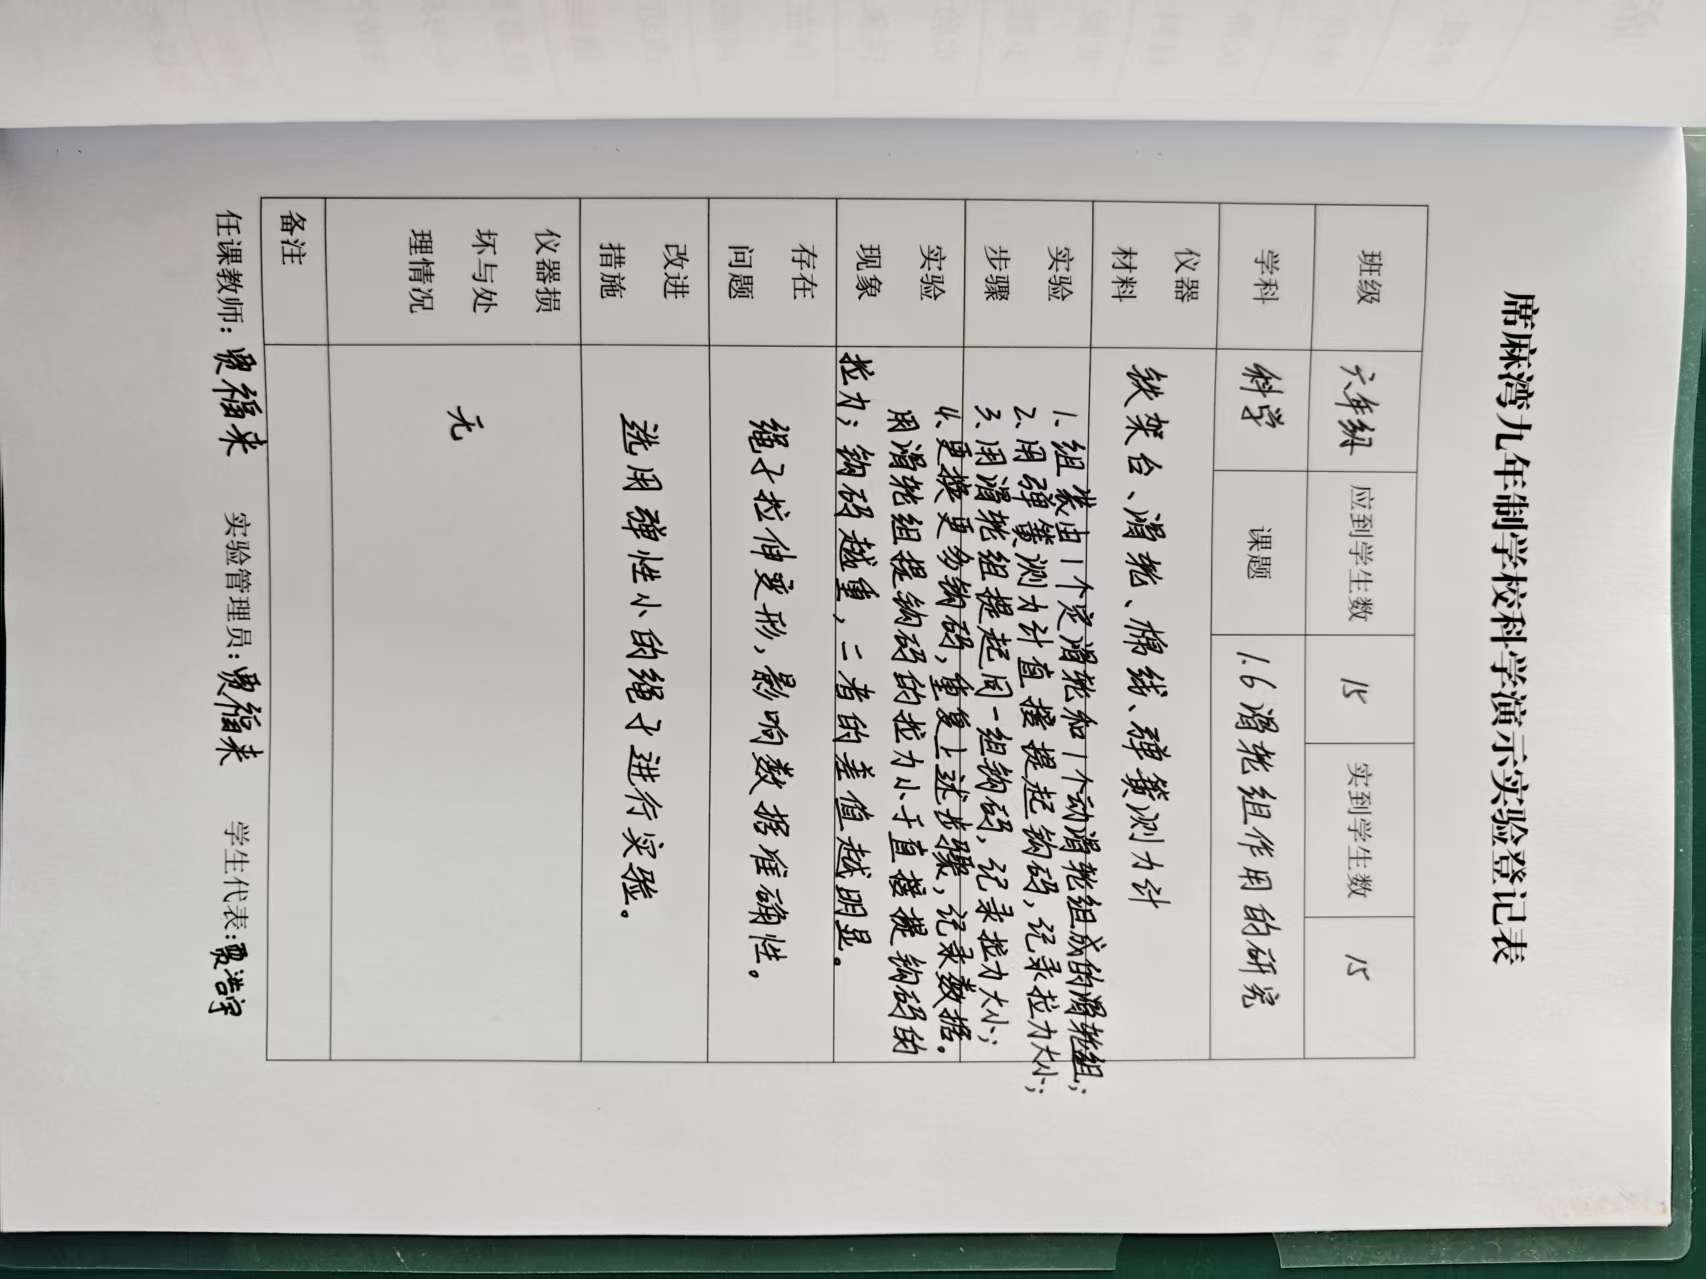 席麻湾九年制学校科学演示实验登记表
班级 六年级 应到学生数 15 实到学生数 15
学科 科学 课题 1.6滑轮组作用的研究
仪器
材料
铁架台、滑轮、棉线、弹簧测力计
实验
步骤
1. 组装由1个定滑轮和1个动滑轮组成的滑轮组;
2. 用弹簧测力计直接提起钩码,记录拉力大小;
3. 用滑轮组提起同一组钩码,记录拉力大小;
4. 更换更多钩码,重复上述步骤,记录数据。
实验
现象
用滑轮组提钩码的拉力小于直接提钩码的
拉力;钩码越重,二者的差值越明显。
存在
问题
绳子拉伸变形,影响数据准确性。
改进
措施
选用弹性小的绳子进行实验。
仪器损
坏与处
理情况
无
备注
任课教师:贾福来 实验管理员:贾福来 学生代表:贾浩宇